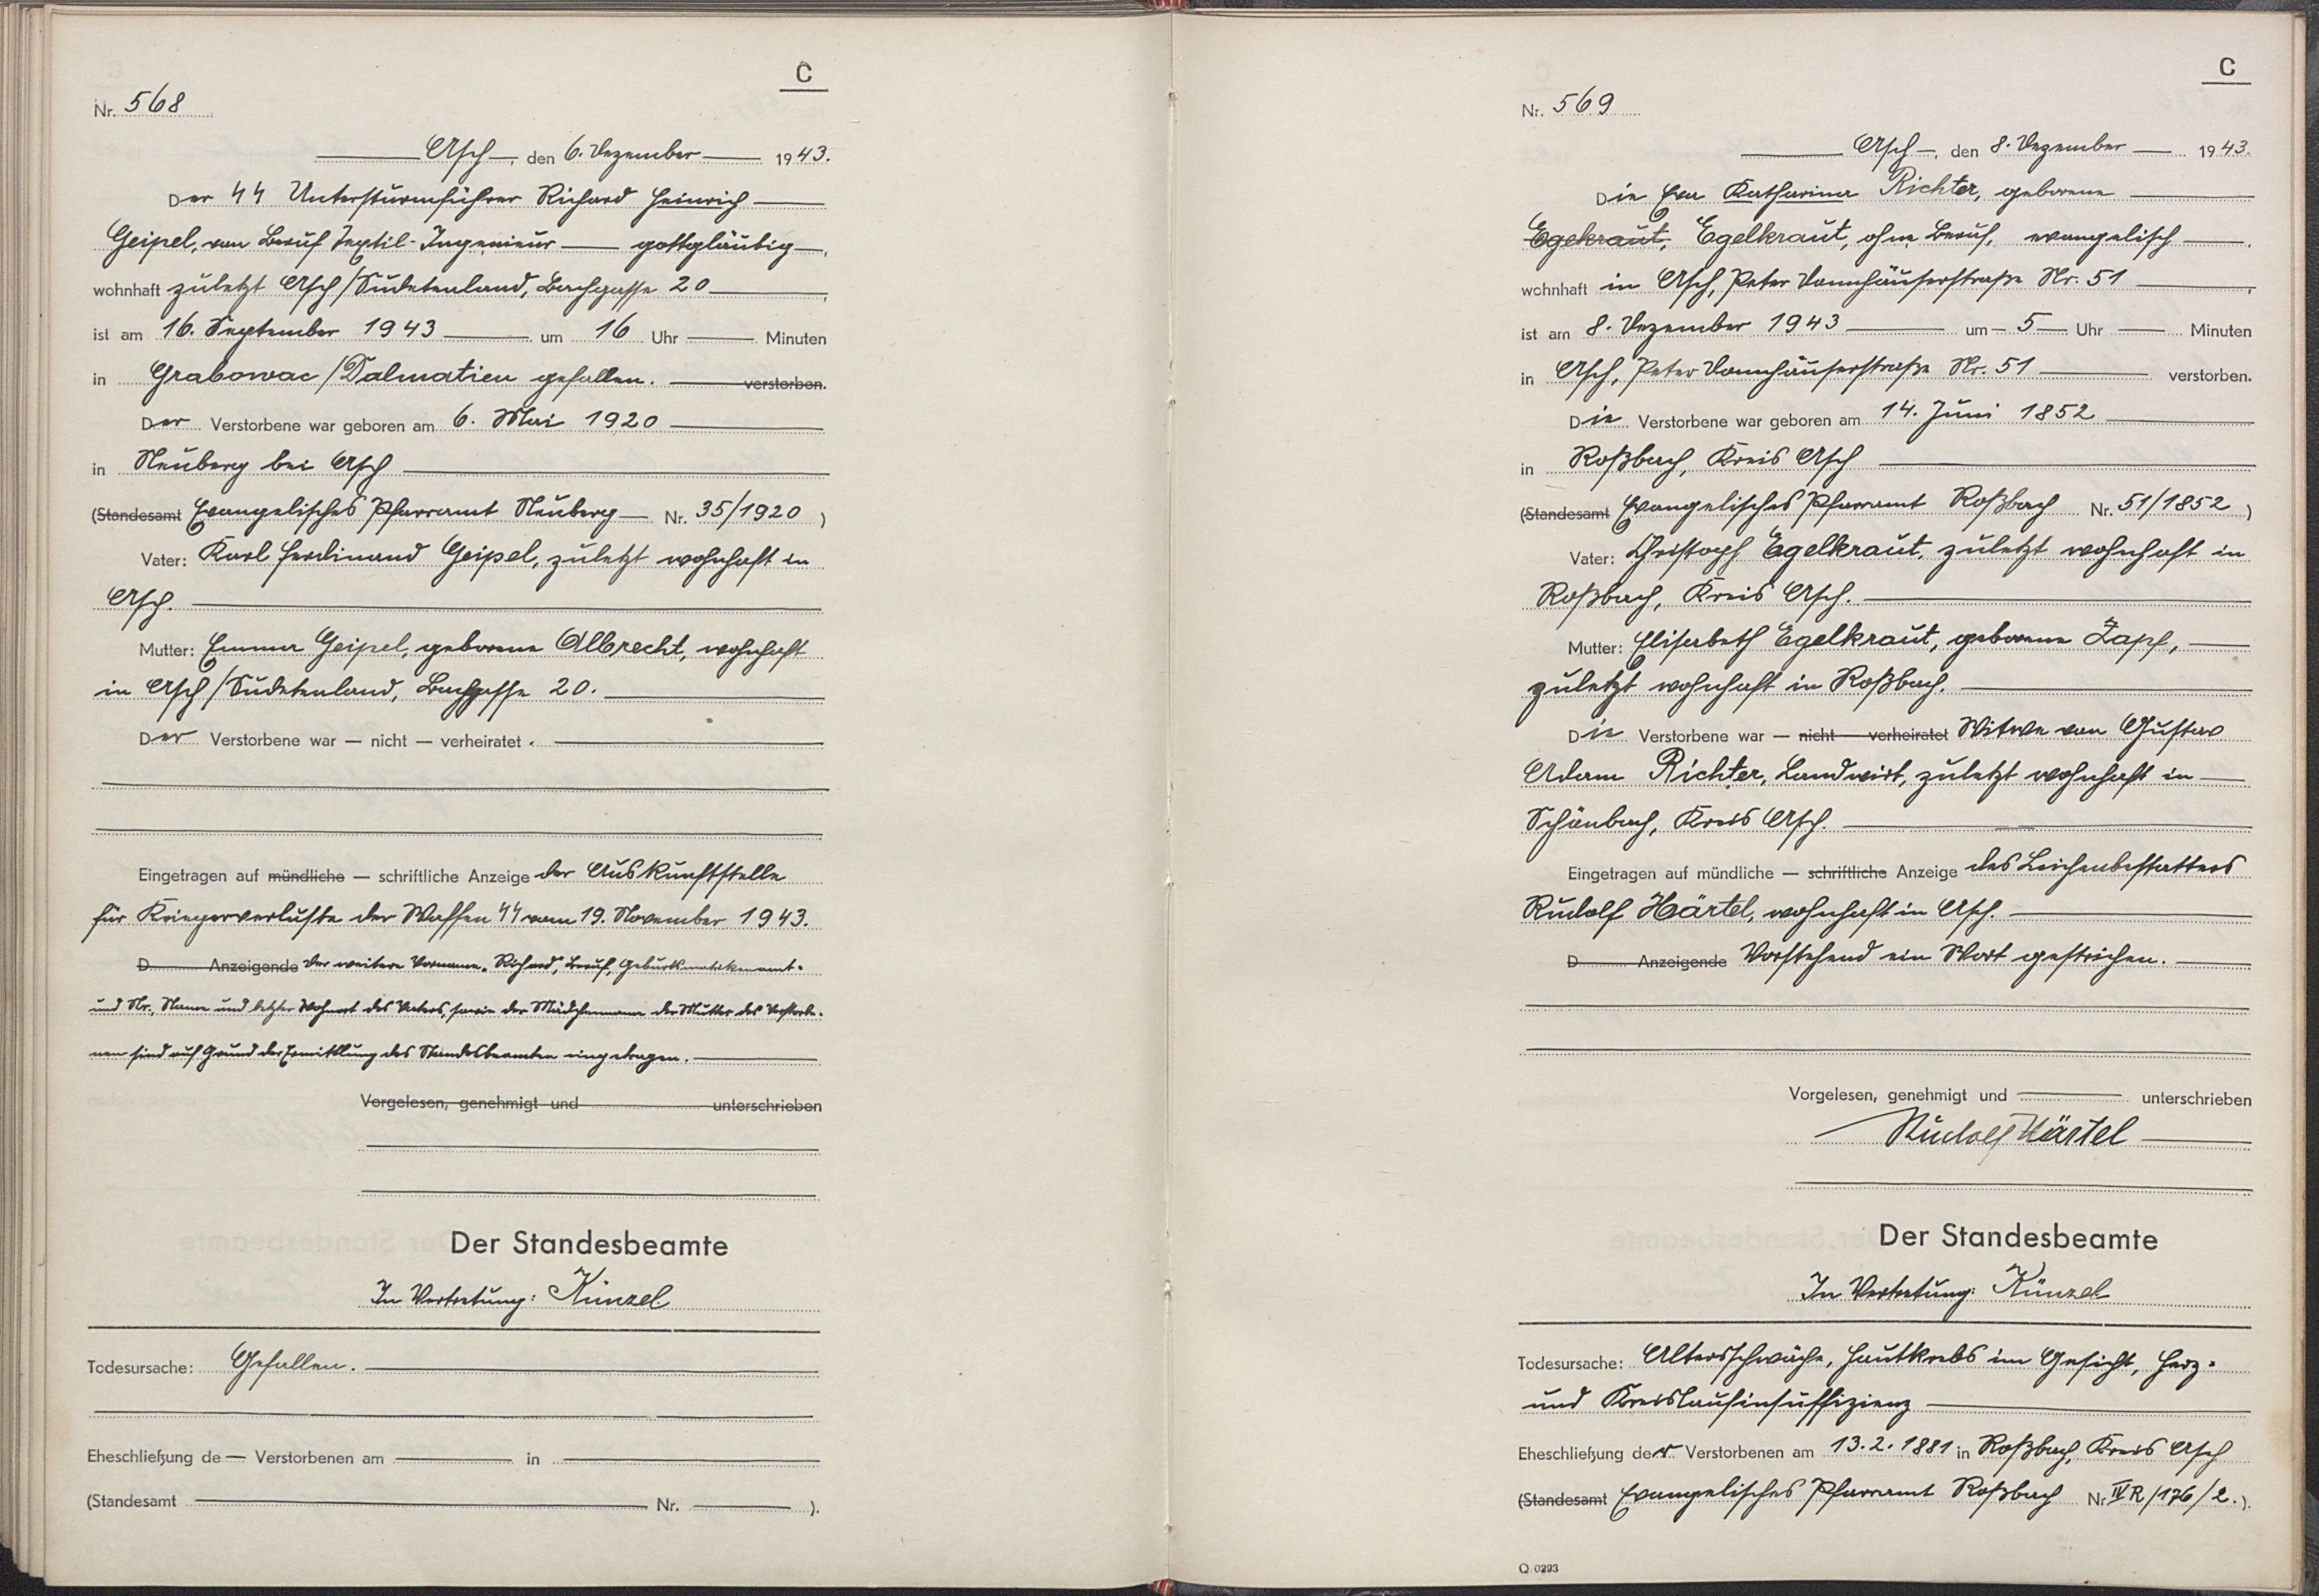 C
Nr. 568
Asch, den 6. Dezember 1943.
Der SS Untersturmführer Richard Heinrich
Geipel, von Beruf Textil-Ingenieur gottgläubig,
wohnhaft zuletzt Asch/Sudetenland, Bachgasse 20,
ist am 16. September 1943 um 16 Uhr Minuten
in Grabowac/Dalmatien gefallen. verstorben.
Der Verstorbene war geboren am 6. Mai 1920
in Neuberg bei Asch
(Standesamt Evangelisches Pfarramt Neuberg Nr. 35/1920)
Vater: Karl Ferdinand Geipel, zuletzt wohnhaft in
Asch.
Mutter: Emma Geipel, geborene Albrecht, wohnhaft
in Asch/Sudetenland, Bachgasse 20.
Der Verstorbene war — nicht — verheiratet.
Eingetragen auf mündliche — schriftliche Anzeige der Auskunftstelle
für Kriegerverluste der Waffen SS vom 19. November 1943.
D Anzeigende Der weitere Vorname „Richard", Beruf, Geburtsmatrikenamt-
und Nr., Name und letzter Wohnort des Vaters, sowie der Mädchenname der Mutter des Verstorbe-
nen sind auf Grund der Ermittlung des Standesbeamten eingetragen.
Vorgelesen, genehmigt und unterschrieben
Der Standesbeamte
In Vertretung: Künzel
Todesursache: Gefallen.
Eheschließung de — Verstorbenen am in
(Standesamt Nr. ).
C
Nr. 569
Asch, den 8. Dezember 1943.
Die Eva Katharina Richter, geborene
Egekraut, Egelkraut, ohne Beruf, evangelisch,
wohnhaft in Asch, Peter Donnhäuserstraße Nr. 51,
ist am 8. Dezember 1943 um 5 Uhr Minuten
in Asch, Peter Donnhäuserstraße Nr. 51 verstorben.
Die Verstorbene war geboren am 14. Juni 1852
in Roßbach, Kreis Asch
(Standesamt Evangelisches Pfarramt Roßbach Nr. 51/1852)
Vater: Christoph Egelkraut, zuletzt wohnhaft in
Roßbach, Kreis Asch.
Mutter: Elisabeth Egelkraut, geborene Zapf,
zuletzt wohnhaft in Roßbach.
Die Verstorbene war — nicht — verheiratet Witwe von Gustav
Adam Richter, Landwirt, zuletzt wohnhaft in
Schönbach, Kreis Asch.
Eingetragen auf mündliche — schriftliche Anzeige des Leichenbestatters
Rudolf Härtel, wohnhaft in Asch.
D Anzeigende Vorstehend ein Wort gestrichen.
Vorgelesen, genehmigt und unterschrieben
Rudolf Härtel
Der Standesbeamte
In Vertretung: Künzel
Todesursache: Altersschwäche, Hautkrebs im Gesicht, Herz-
und Kreislaufinsuffizienz
Eheschließung der Verstorbenen am 13.2.1881 in Roßbach, Kreis Asch
(Standesamt Evangelisches Pfarramt Roßbach Nr. IV R/176/2.).
Q 0293